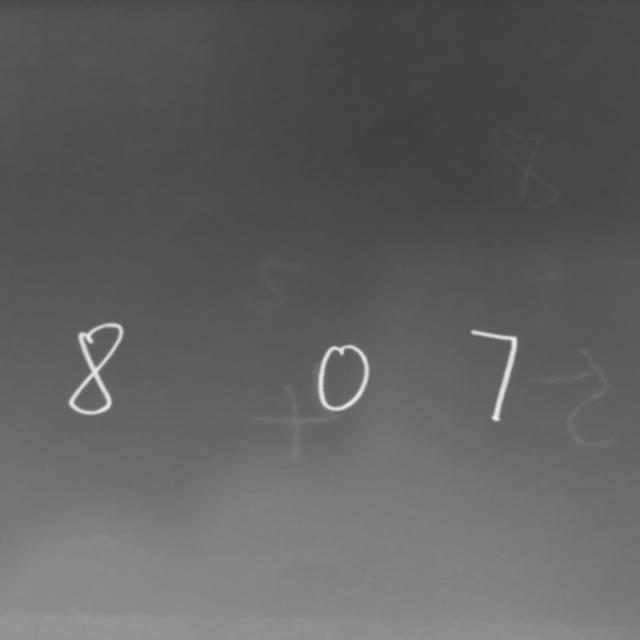 8 0 7